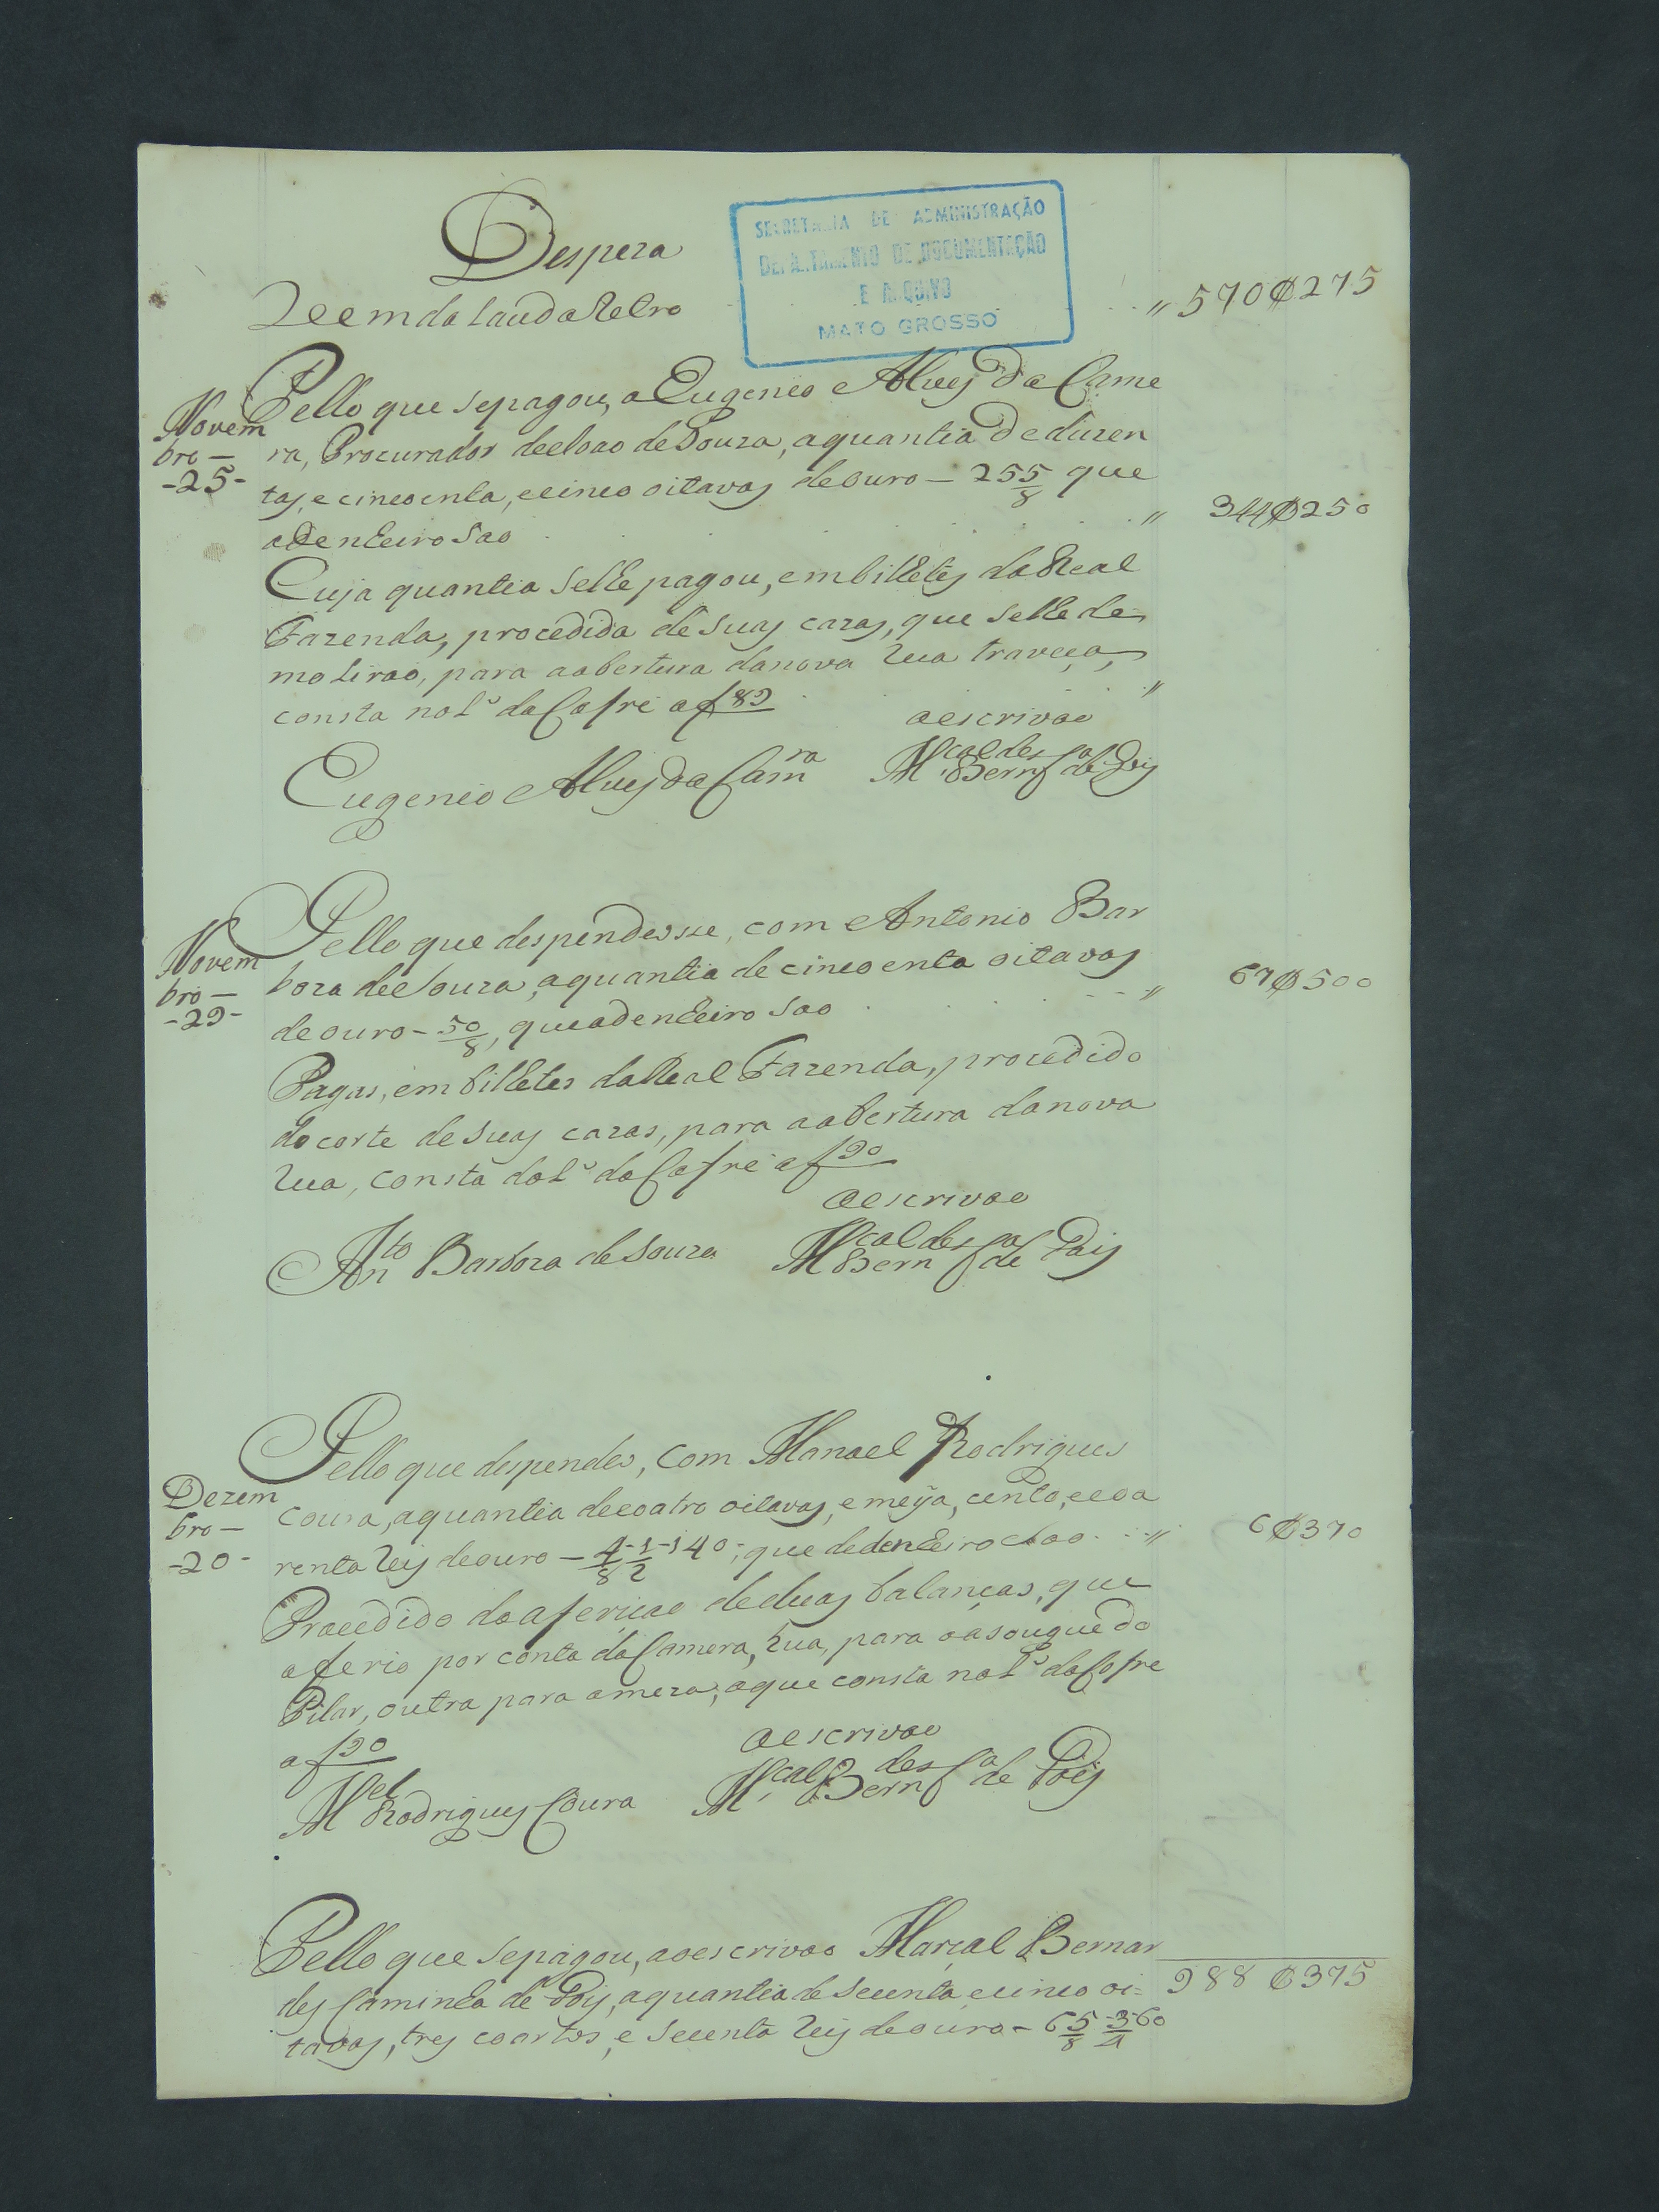 Despeza
SECRETARIA DE ADMINISTRAÇÃO
DEPARTAMENTO DE DOCUMENTAÇÃO
E ARQUIVO
MATO GROSSO
Vem da lauda retro " 570$275
Novem
bro —
-25-
Pello que se pagou, a Eugenio Alvez da Came
ra, Procurador de Joao de Souza, a quantia de duzen
tas, e cincoenta, e cinco oitavas de ouro — 255/8 que
a Denheiro Sao " 344$250
Cuja quantia se lhe pagou, em bilhetes da Real
Fazenda, procedida de suas cazas, que se lhe de
molirao, para a abertura da nova rua traveça,
consta no L.º do Cofre a f 89 "
O escrivao
Eugenio Alves da Cam.ra M.cal Bern.des C.a de Pois
Novem
bro —
-29-
Pello que despendeo se, com Antonio Bar
boza de Souza, a quantia de cincoenta oitavas
de ouro - 50/8, que a denheiro sao " 67$500
Pagas, em bilhetes da Real Fazenda, procedido
do corte de suas cazas, para a abertura da nova
rua, consta do L.º do Cofre a f 90
O escrivao
An.to Barboza de Souza M.cal Bern.des C.a de Pois
Dezem
bro —
-20-
Pello que despendeo, com Manoel Rodrigues
Coura, a quantia de coatro oitavas, e meya, cento, e coa
renta reis de ouro — 4/8-1/2-140-, que de denheiro Sao " 6$370
Procedido da afericao de duas balanças, que
aferio por conta da Camera, hua, para o asougue do
Pilar, outra para a meza, o que consta no L.º do Cofre
a f 90
O escrivao
M.el Rodrigues Coura M.cal Bern.des C.a de Pois
Pello que se pagou, ao escrivao Marçal Bernar
des Caminha de Pois, a quantia de secenta, e cinco oi= 988$375
tavas, tres coartos, e secenta reis de ouro - 65/8-3/4-60